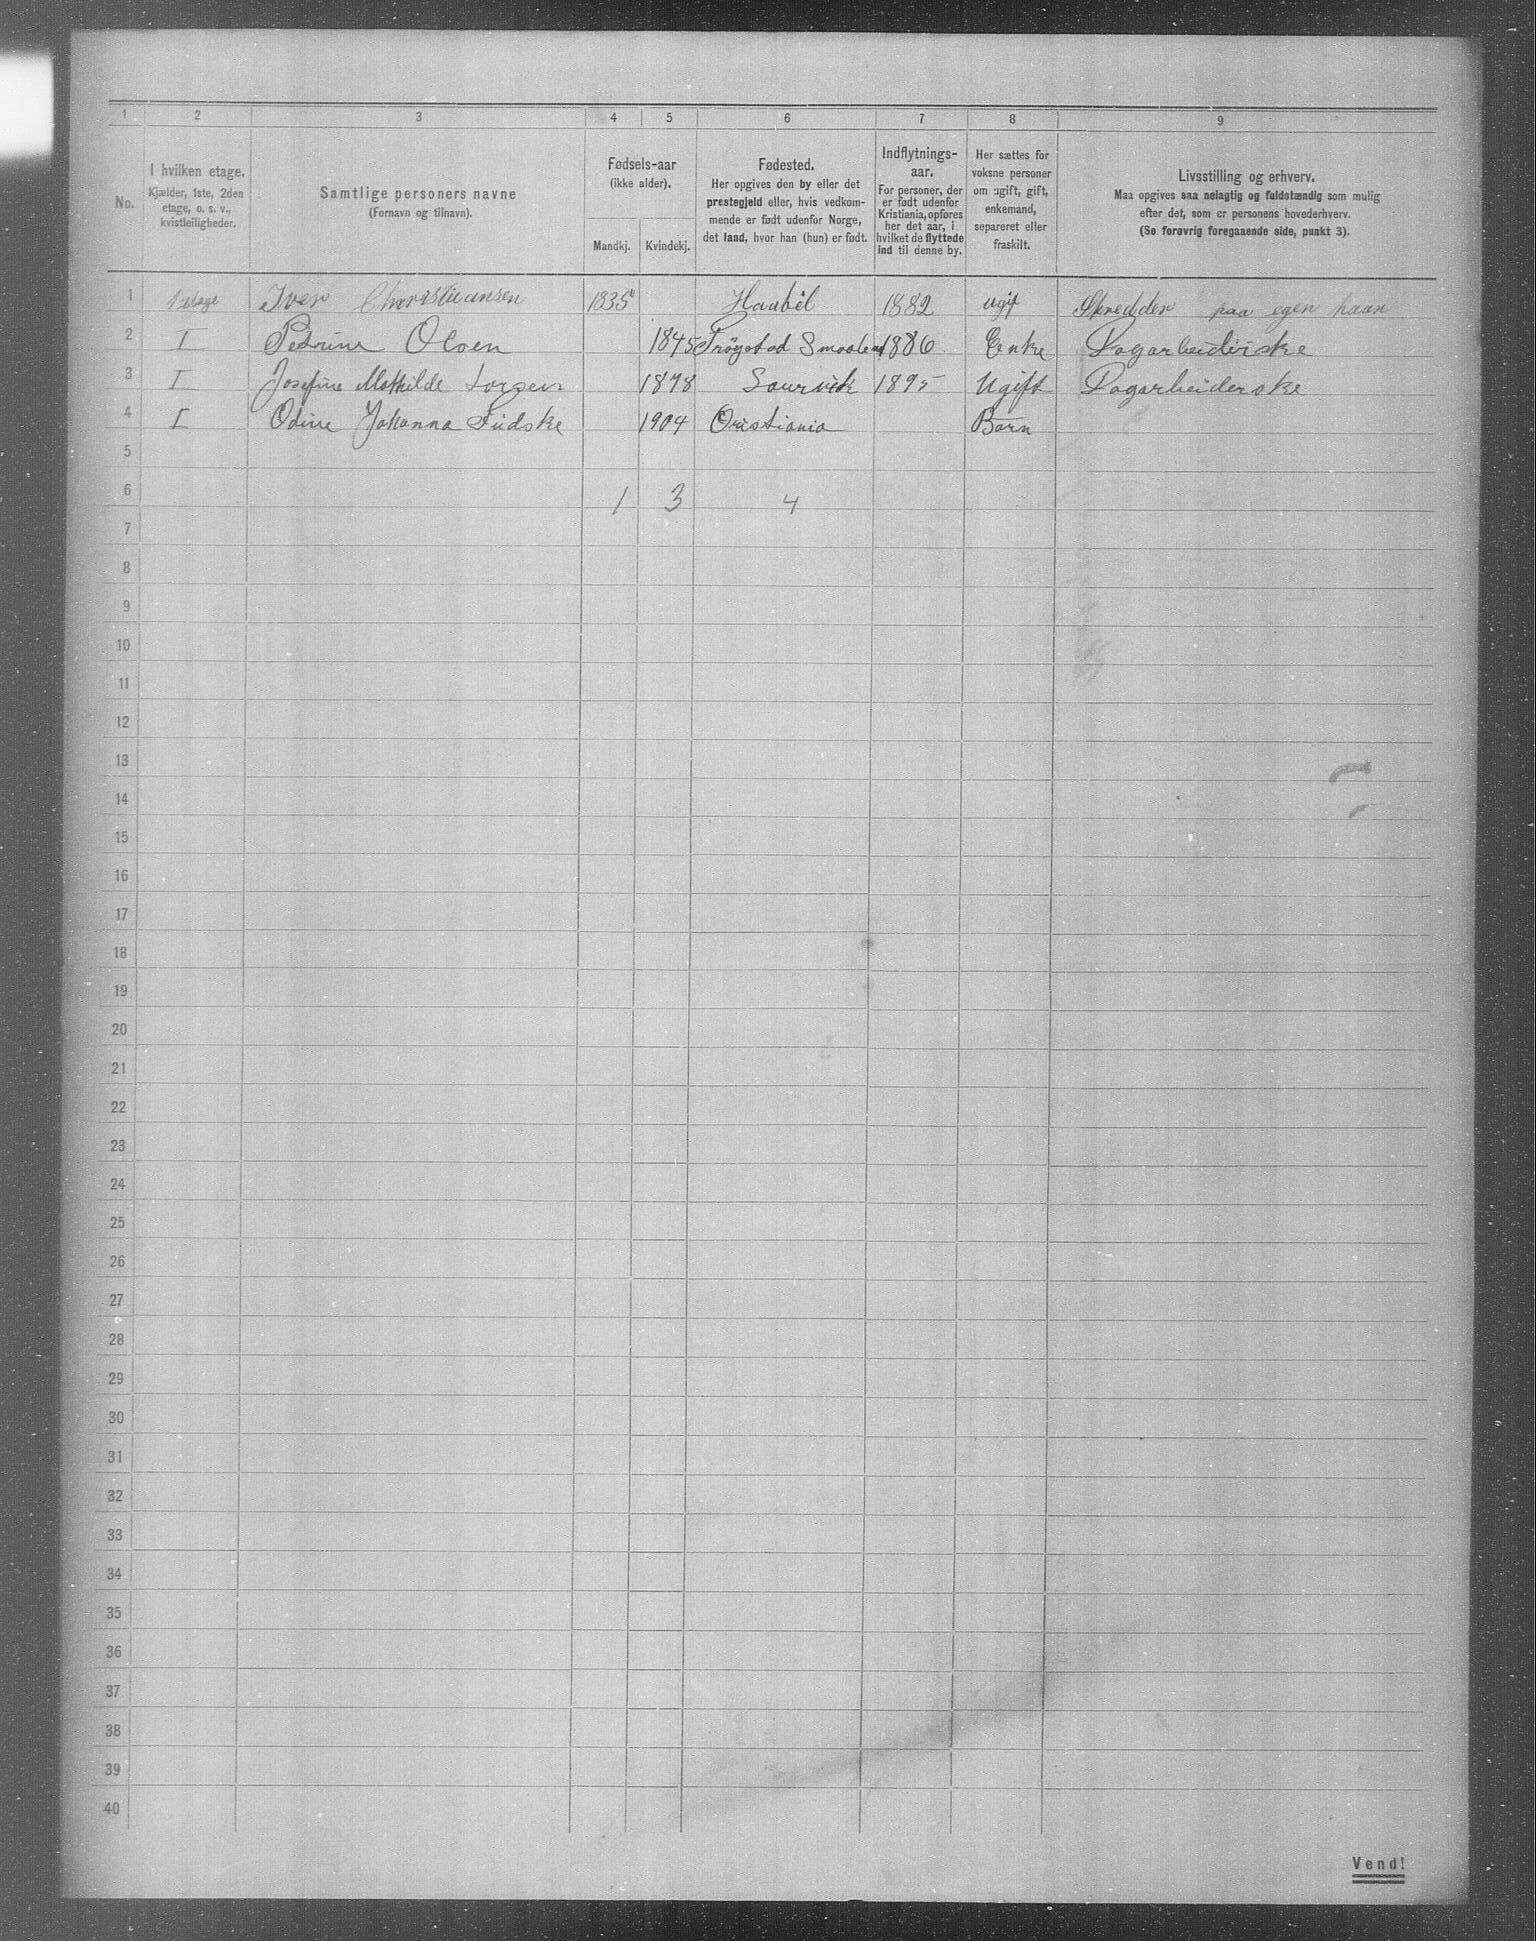 1 2 3 4 5 6 7 8 9
No.
I hvilken etage.
Kjælder, 1ste, 2den
etage, o. s. v.,
kvistleiligheder.
Samtlige personers navne
(Fornavn og tilnavn).
Fødsels-aar
(ikke alder).
Mandkj. Kvindekj.
Fødested.
Her opgives den by eller det
prestegjeld eller, hvis vedkom-
mende er født udenfor Norge,
det land, hvor han (hun) er født.
Indflytnings-
aar.
For personer, der
er født udenfor
Kristiania, opføres
her det aar, i
hvilket de flyttede
ind til denne by.
Her sættes for
voksne personer
om ugift, gift,
enkemand,
separeret eller
fraskilt.
Livsstilling og erhverv.
Maa opgives saa nøiagtig og fuldstændig som mulig
efter det, som er personens hovederhverv.
(Se forøvrig foregaaende side, punkt 3).
1 1 etage Iver Christiansen 1835 Haabøl 1882 ugif Skredder paa egen haan
2 I Petrine Olsen 1845 Trøgstad Smaalen 1886 Enke Dagarbeiderske
3 I Josefine Mathilde 1878 1895 Ugift Dagarbeiderske
4 I Odine Johanna 1904 Cristiania Barn
5
6 1 3 4
7
8
9
10
11
12
13
14
15
16
17
18
19
20
21
22
23
24
25
26
27
28
29
30
31
32
33
34
35
36
37
38
39
40
Vend!